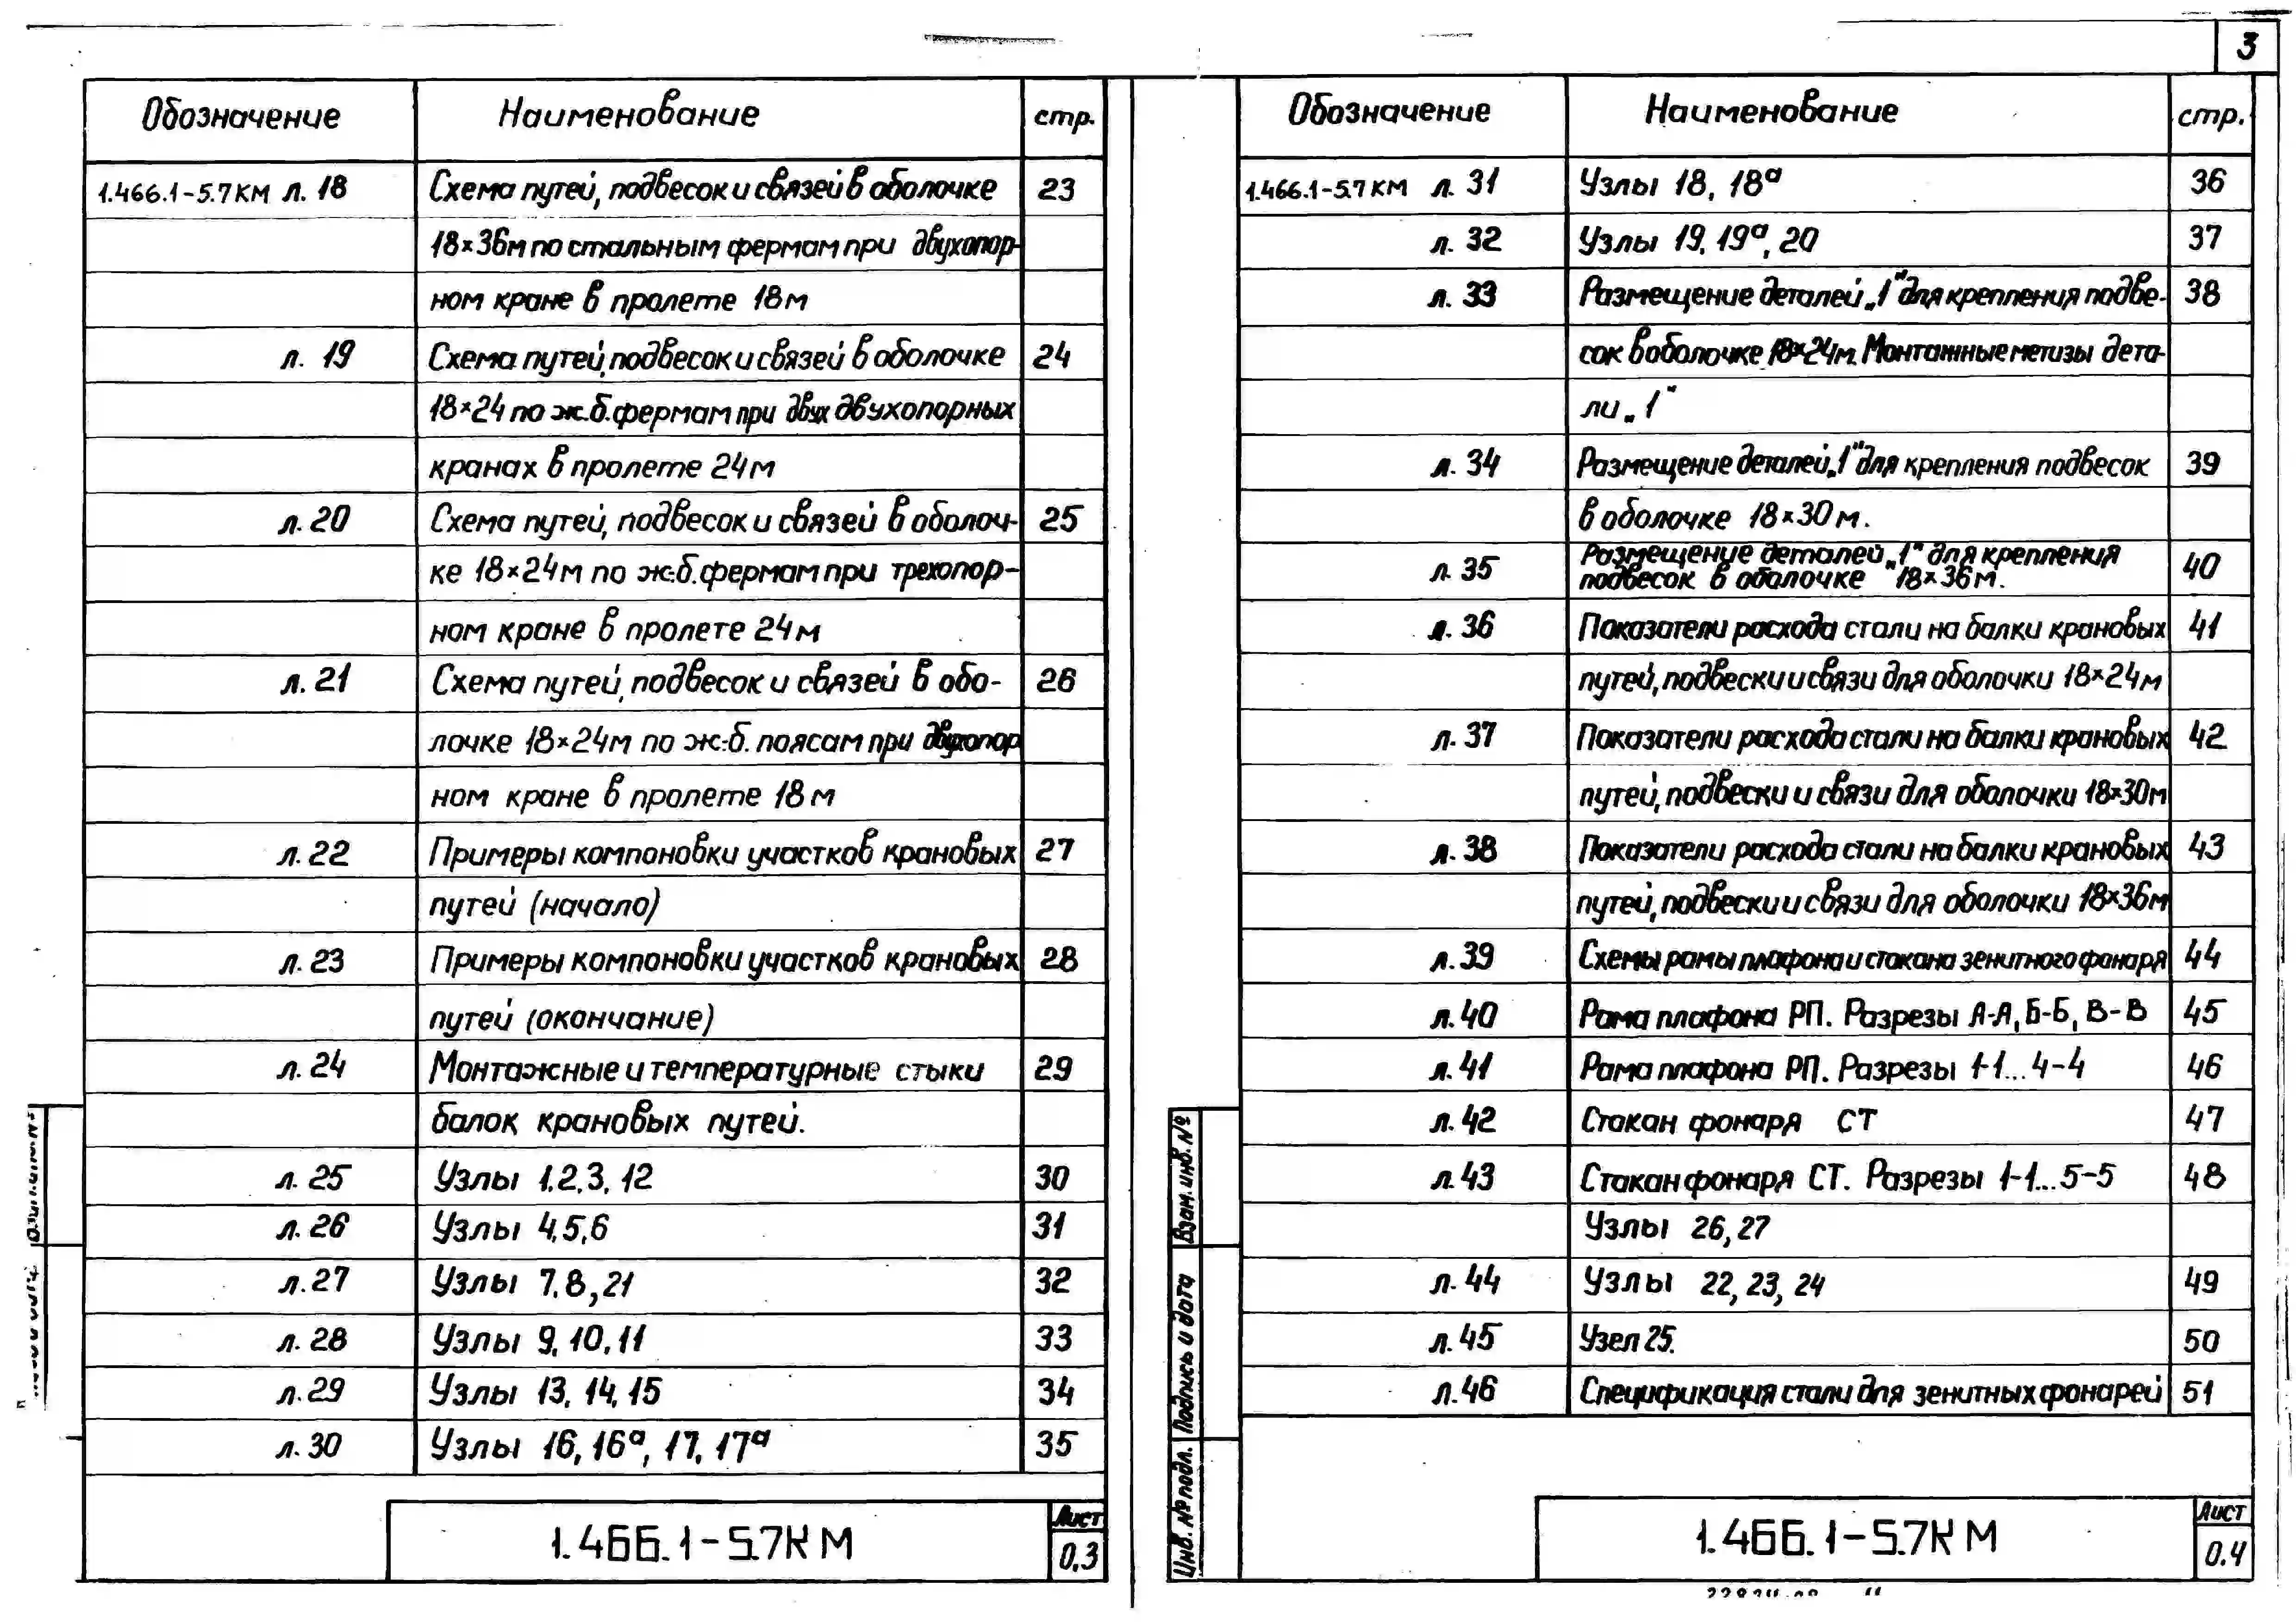 3
Обозначение Наименование стр.
1.466.1-5.7КМ л. 18 Схема путей, подвесок и связей в оболочке 23
18×36м по стальным фермам при двухопор-
ном кране в пролете 18м
л. 19 Схема путей, подвесок и связей в оболочке 24
18×24 по ж.б. фермам при двух двухопорных
кранах в пролете 24м
л. 20 Схема путей, подвесок и связей в оболоч- 25
ке 18×24м по ж.-б. фермам при трехопор-
ном кране в пролете 24м
л. 21 Схема путей, подвесок и связей в обо- 26
лочке 18×24м по ж.-б. поясам при двухопор
ном кране в пролете 18м
л. 22 Примеры компоновки участков крановых 27
путей (начало)
л. 23 Примеры компоновки участков крановых 28
путей (окончание)
л. 24 Монтажные и температурные стыки 29
балок крановых путей.
л. 25 Узлы 1.2.3, 12 30
л. 26 Узлы 4,5,6 31
л. 27 Узлы 7.8,21 32
л. 28 Узлы 9, 10, 11 33
л. 29 Узлы 13, 14, 15 34
л. 30 Узлы 16, 16ª, 17, 17ª 35
1.466.1-5.7КМ
Лист
0.3
Обозначение Наименование стр.
1.466.1-5.7КМ л. 31 Узлы 18, 18ª 36
л. 32 Узлы 19, 19ª, 20 37
л. 33 Размещение деталей „1" для крепления подве- 38
сок в оболочке 18×24м. Монтажные метизы дета-
ли „1"
л. 34 Размещение деталей „1" для крепления подвесок 39
в оболочке 18×30м.
л. 35 Размещение деталей „1" для крепления 40
подвесок в оболочке 18×36м.
л. 36 Показатели расхода стали на балки крановых 41
путей, подвески и связи для оболочки 18×24м
л. 37 Показатели расхода стали на балки крановых 42
путей, подвески и связи для оболочки 18×30м
л. 38 Показатели расхода стали на балки крановых 43
путей, подвески и связи для оболочки 18×36м
л. 39 Схемы рамы плафона и стакана зенитного фонаря 44
л. 40 Рама плафона РП. Разрезы А-А, Б-Б, В-В 45
л. 41 Рама плафона РП. Разрезы 1-1...4-4 46
л. 42 Стакан фонаря СТ 47
л. 43 Стакан фонаря СТ. Разрезы 1-1...5-5 48
Узлы 26,27
л. 44 Узлы 22, 23, 24 49
л. 45 Узел 25. 50
л. 46 Спецификация стали для зенитных фонарей 51
Взам. инв. №
Подпись и дата
Инв. № подл.
1.466.1-5.7КМ
Лист
0.4